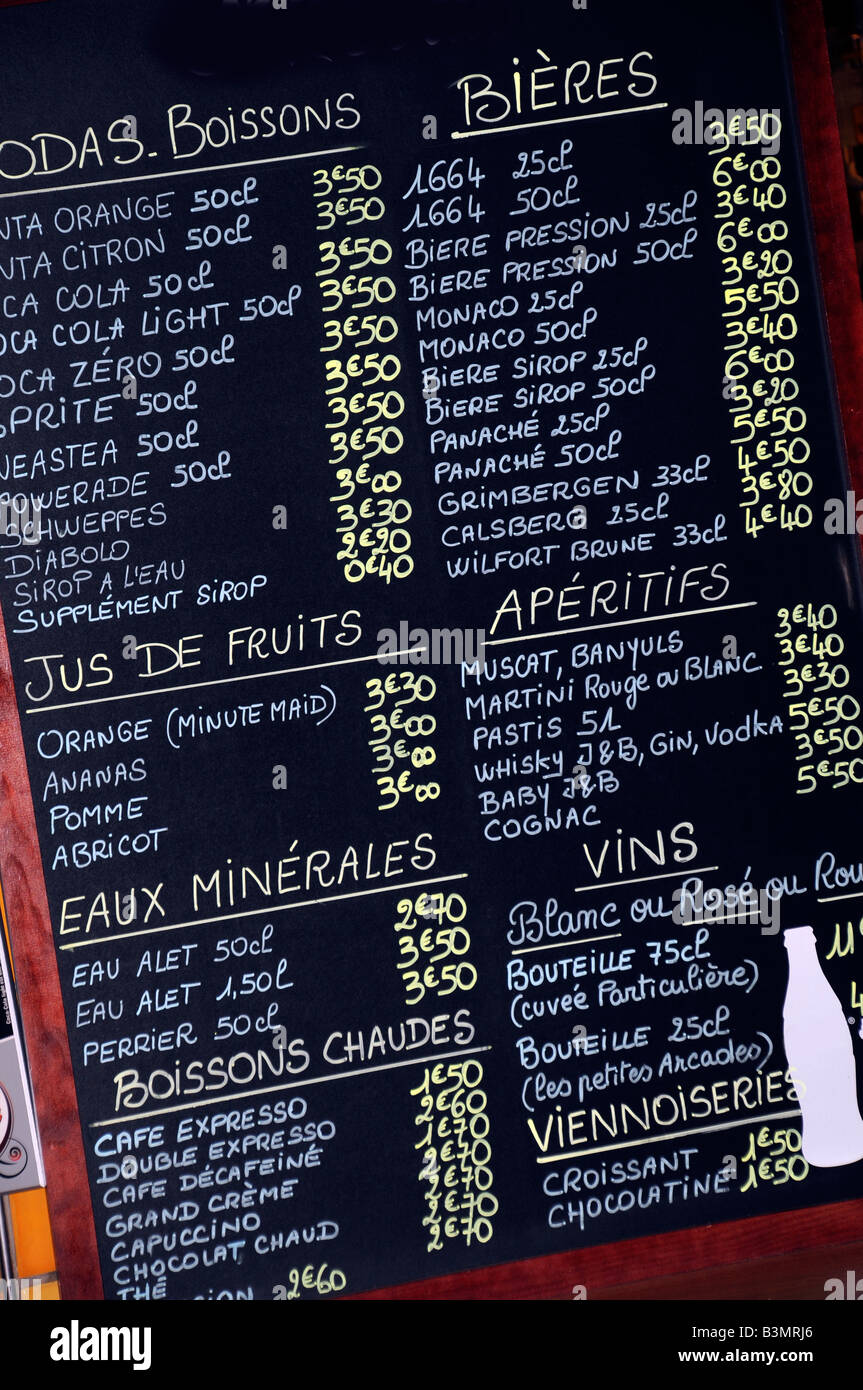 ODAS. BOISSONS
NTA ORANGE 50cl 3€50
NTA CITRON 50cl 3€50
CA COLA 50cl 3€50
OCA COLA LIGHT 50cl 3€50
OCA ZÉRO 50cl 3€50
SPRITE 50cl 3€50
NEASTEA 50cl 3€50
POWERADE 50cl 3€50
SCHWEPPES 3€00
DIABOLO 3€30
SIROP A L'EAU 2€20
SUPPLÉMENT SIROP 0€40
JUS DE FRUITS
ORANGE (MINUTE MAID) 3€30
ANANAS 3€00
POMME 3€00
ABRICOT 3€00
EAUX MINÉRALES
EAU ALET 50cl 2€70
EAU ALET 1,50l 3€50
PERRIER 50cl 3€50
BOISSONS CHAUDES
CAFE EXPRESSO 1€50
DOUBLE EXPRESSO 2€60
CAFE DÉCAFEINÉ 1€70
GRAND CRÈME 2€70
CAPUCCINO 2€70
CHOCOLAT CHAUD 2€70
THÉ 2€70
SION 2€60
BIÈRES
1664 25cl 3€50
1664 50cl 6€00
BIERE PRESSION 25cl 3€40
BIERE PRESSION 50cl 6€00
MONACO 25cl 3€20
MONACO 50cl 5€50
BIERE SIROP 25cl 3€40
BIERE SIROP 50cl 6€00
PANACHÉ 25cl 3€20
PANACHÉ 50cl 5€50
GRIMBERGEN 33cl 4€50
CALSBERG 25cl 3€80
WILFORT BRUNE 33cl 4€40
APÉRITIFS
MUSCAT, BANYULS 3€40
MARTINI ROUGE OU BLANC 3€40
PASTIS 51 3€30
WHISKY J&B, GIN, VODKA 5€50
BABY J&B 3€50
COGNAC 5€50
VINS
BLANC OU ROSÉ OU ROU
BOUTEILLE 75cl 11€
(CUVEÉ PARTICULIÈRE)
BOUTEILLE 25cl 4
(LES PETITES ARCADES)
VIENNOISERIES
CROISSANT 1€50
CHOCOLATINE 1€50
alamy
Image ID: B3MRJ6
www.alamy.com